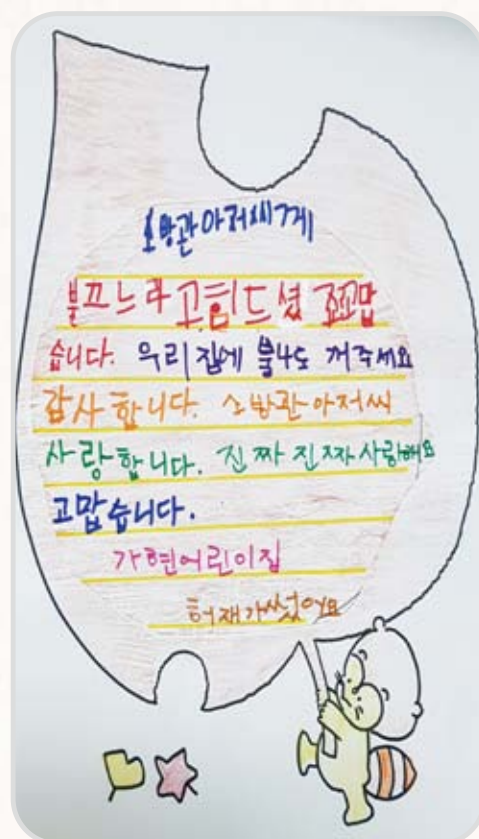 소방관아저씨께
불끄느라 고힘드셨 꼬꼬맙
습니다. 우리집에 불나도 꺼주세요
감사합니다. 소방관아저씨
사랑합니다. 진짜진짜사랑해요
고맙습니다.
가현어린이집
허재가썼어요